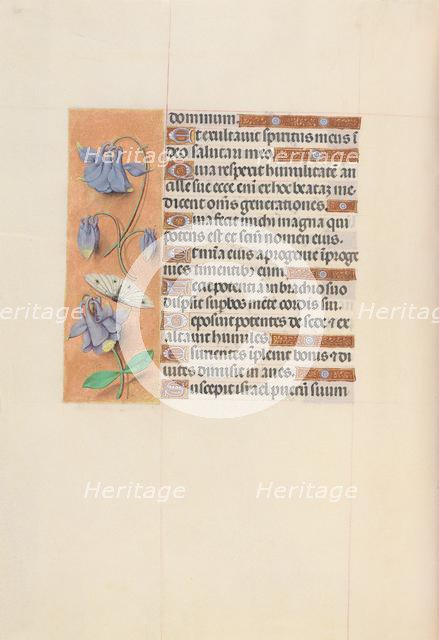 dominum.
Et exultavit spiritus meus i
deo salutari meo.
Quia respexit humilitatē an
cille sue ecce enī ex hoc beatā me
dicent om̄s generationes.
Quia fecit michi magna qui
potens est et sctm̄ nomen eius.
Et mīa eius a progenie ī proge
nies timentibus eum.
Fecit potentiā in brachio suo
dispsit supbos mēte cordis sui.
Deposuit potentes de sede et ex
altavit humiles.
Esurientes īplevit bonis et di
vites dimisit inanes.
Suscepit israel puerū suum
Heritage Heritage
Heritage Heritage Heritage
Heritage Heritage